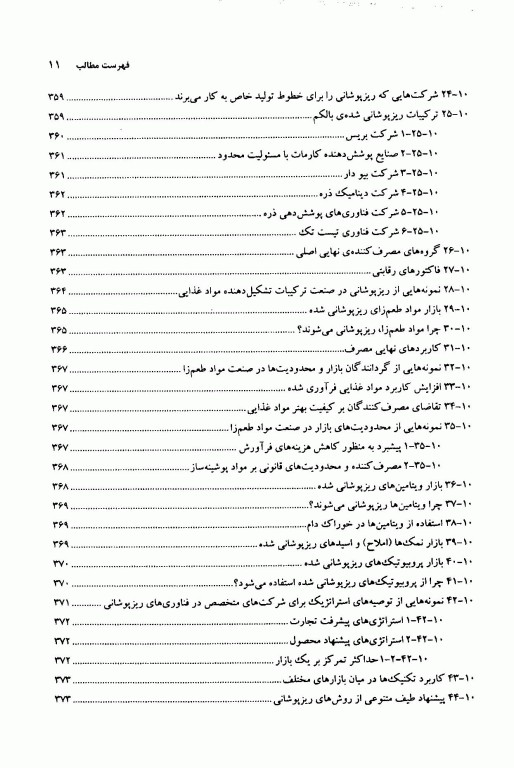 فهرست مطالب ۱۱
۱۰-۲۴ شرکت‌هایی که ریزپوشانی را برای خطوط تولید خاص به کار می‌برند ........ ۳۵۹
۱۰-۲۵ ترکیبات ریزپوشانی شده‌ی بالکم ........ ۳۵۹
۱۰-۲۵-۱ شرکت بریس ........ ۳۶۰
۱۰-۲۵-۲ صنایع پوشش‌دهنده کارمات با مسئولیت محدود ........ ۳۶۱
۱۰-۲۵-۳ شرکت بیو دار ........ ۳۶۱
۱۰-۲۵-۴ شرکت دینامیک ذره ........ ۳۶۲
۱۰-۲۵-۵ شرکت فناوری‌های پوشش‌دهی ذره ........ ۳۶۲
۱۰-۲۵-۶ شرکت فناوری تیست تک ........ ۳۶۳
۱۰-۲۶ گروه‌های مصرف‌کننده‌ی نهایی اصلی ........ ۳۶۳
۱۰-۲۷ فاکتورهای رقابتی ........ ۳۶۳
۱۰-۲۸ نمونه‌هایی از ریزپوشانی در صنعت ترکیبات تشکیل‌دهنده مواد غذایی ........ ۳۶۴
۱۰-۲۹ بازار مواد طعم‌زای ریزپوشانی شده ........ ۳۶۵
۱۰-۳۰ چرا مواد طعم‌زا، ریزپوشانی می‌شوند؟ ........ ۳۶۵
۱۰-۳۱ کاربردهای نهایی مصرف ........ ۳۶۶
۱۰-۳۲ نمونه‌هایی از گردانندگان بازار و محدودیت‌ها در صنعت مواد طعم‌زا ........ ۳۶۷
۱۰-۳۳ افزایش کاربرد مواد غذایی فرآوری شده ........ ۳۶۷
۱۰-۳۴ تقاضای مصرف‌کنندگان بر کیفیت بهتر مواد غذایی ........ ۳۶۷
۱۰-۳۵ نمونه‌هایی از محدودیت‌های بازار در صنعت مواد طعم‌زا ........ ۳۶۷
۱۰-۳۵-۱ پیشبرد به منظور کاهش هزینه‌های فرآورش ........ ۳۶۷
۱۰-۳۵-۲ مصرف‌کننده و محدودیت‌های قانونی بر مواد پوشینه‌ساز ........ ۳۶۸
۱۰-۳۶ بازار ویتامین‌های ریزپوشانی شده ........ ۳۶۸
۱۰-۳۷ چرا ویتامین‌ها ریزپوشانی می‌شوند؟ ........ ۳۶۹
۱۰-۳۸ استفاده از ویتامین‌ها در خوراک دام ........ ۳۶۹
۱۰-۳۹ بازار نمک‌ها (املاح) و اسیدهای ریزپوشانی شده ........ ۳۶۹
۱۰-۴۰ بازار پروبیوتیک‌های ریزپوشانی شده ........ ۳۷۰
۱۰-۴۱ چرا از پروبیوتیک‌های ریزپوشانی شده استفاده می‌شود؟ ........ ۳۷۰
۱۰-۴۲ نمونه‌هایی از توصیه‌های استراتژیک برای شرکت‌های متخصص در فناوری‌های ریزپوشانی ........ ۳۷۱
۱۰-۴۲-۱ استراتژی‌های پیشرفت تجارت ........ ۳۷۲
۱۰-۴۲-۲ استراتژی‌های پیشنهاد محصول ........ ۳۷۲
۱۰-۴۲-۲-۱ حداکثر تمرکز بر یک بازار ........ ۳۷۲
۱۰-۴۳ کاربرد تکنیک‌ها در میان بازارهای مختلف ........ ۳۷۳
۱۰-۴۴ پیشنهاد طیف متنوعی از روش‌های ریزپوشانی ........ ۳۷۳